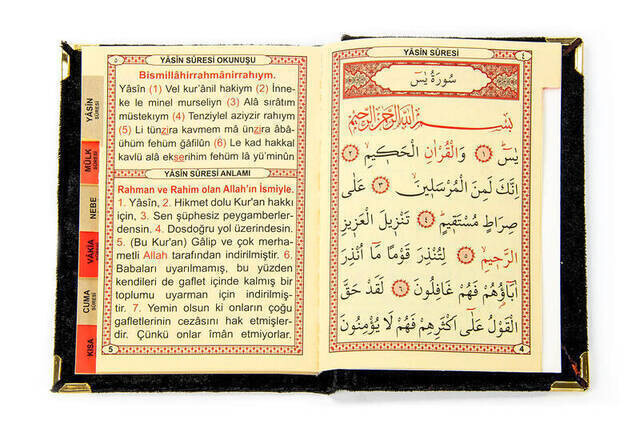 ٥
YÂSÎN SÛRESİ OKUNUŞU
Bismillâhirrahmânirrahıym.
Yâsîn (1) Vel kur'ânil hakiym (2) İnne-
ke le minel murseliyn (3) Alâ sırâtım
müstekıym (4) Tenziylel aziyzir rahıym
(5) Li tünzira kavmem mâ ünzira âbâ-
ühüm fehüm ğâfilûn (6) Le kad hakkal
kavlü alâ ekserihim fehüm lâ yü'minûn
YÂSÎN SÛRESİ ANLAMI
Rahman ve Rahim olan Allah'ın İsmiyle.
1. Yâsîn, 2. Hikmet dolu Kur'an hakkı
için, 3. Sen şüphesiz peygamberler-
densin. 4. Dosdoğru yol üzerindesin.
5. (Bu Kur'an) Gâlip ve çok merha-
metli Allah tarafından indirilmiştir. 6.
Babaları uyarılmamış, bu yüzden
kendileri de gaflet içinde kalmış bir
toplumu uyarman için indirilmiş-
tir. 7. Yemin olsun ki onların çoğu
gafletlerinin cezasını hak etmişler-
dir. Çünkü onlar îman etmiyorlar.
5
YÂSÎN
SÛRESİ
MÜLK
SÛRESİ
NEBE
VÂKIA
CUMA
SÛRESİ
KISA
YÂSÎN SÛRESİ
٤
سُورَةُ يٰسٓ
بِسْمِ اللّٰهِ الرَّحْمٰنِ الرَّحِيمِ
يٰسٓ ﴿١﴾ وَالْقُرْاٰنِ الْحَكِيمِ ﴿٢﴾
اِنَّكَ لَمِنَ الْمُرْسَلِينَ ﴿٣﴾ عَلٰى
صِرَاطٍ مُسْتَقِيمٍ ﴿٤﴾ تَنْزِيلَ الْعَزِيزِ
الرَّحِيمِ ﴿٥﴾ لِتُنْذِرَ قَوْمًا مَٓا اُنْذِرَ
اٰبَٓاؤُهُمْ فَهُمْ غَافِلُونَ ﴿٦﴾ لَقَدْ حَقَّ
الْقَوْلُ عَلٰٓى اَكْثَرِهِمْ فَهُمْ لَا يُؤْمِنُونَ
4